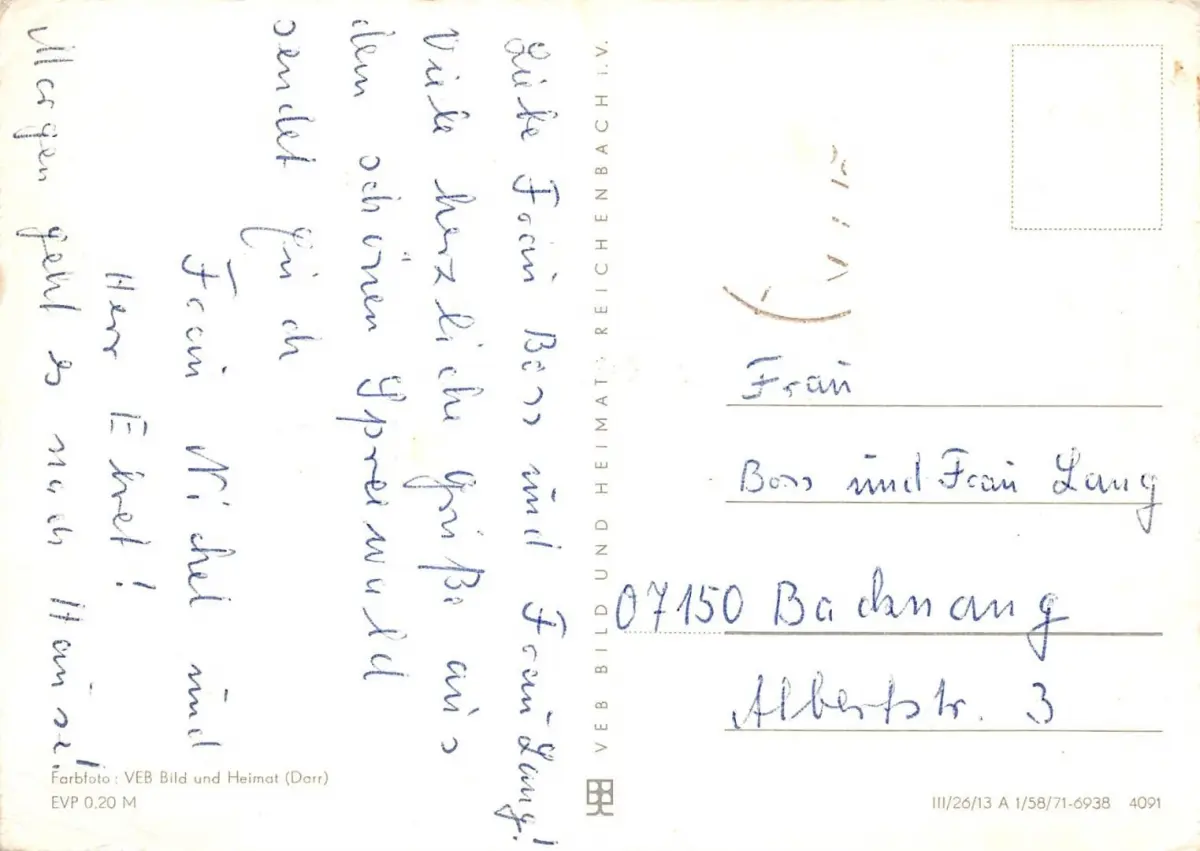 Liebe Frau Boss und Frau Lang!
Viele herzliche Grüße aus
dem schönen Spreewald
sendet Euch
Frau Nichel und
Herr Ebret!
Morgen geht es nach Hause!
Farbfoto: VEB Bild und Heimat (Darr)
EVP 0,20 M
VEB BILD UND HEIMAT · REICHENBACH I. V.
Frau
Boss und Frau Lang
07150 Backnang
Albertstr. 3
III/26/13 A 1/58/71-6938 4091